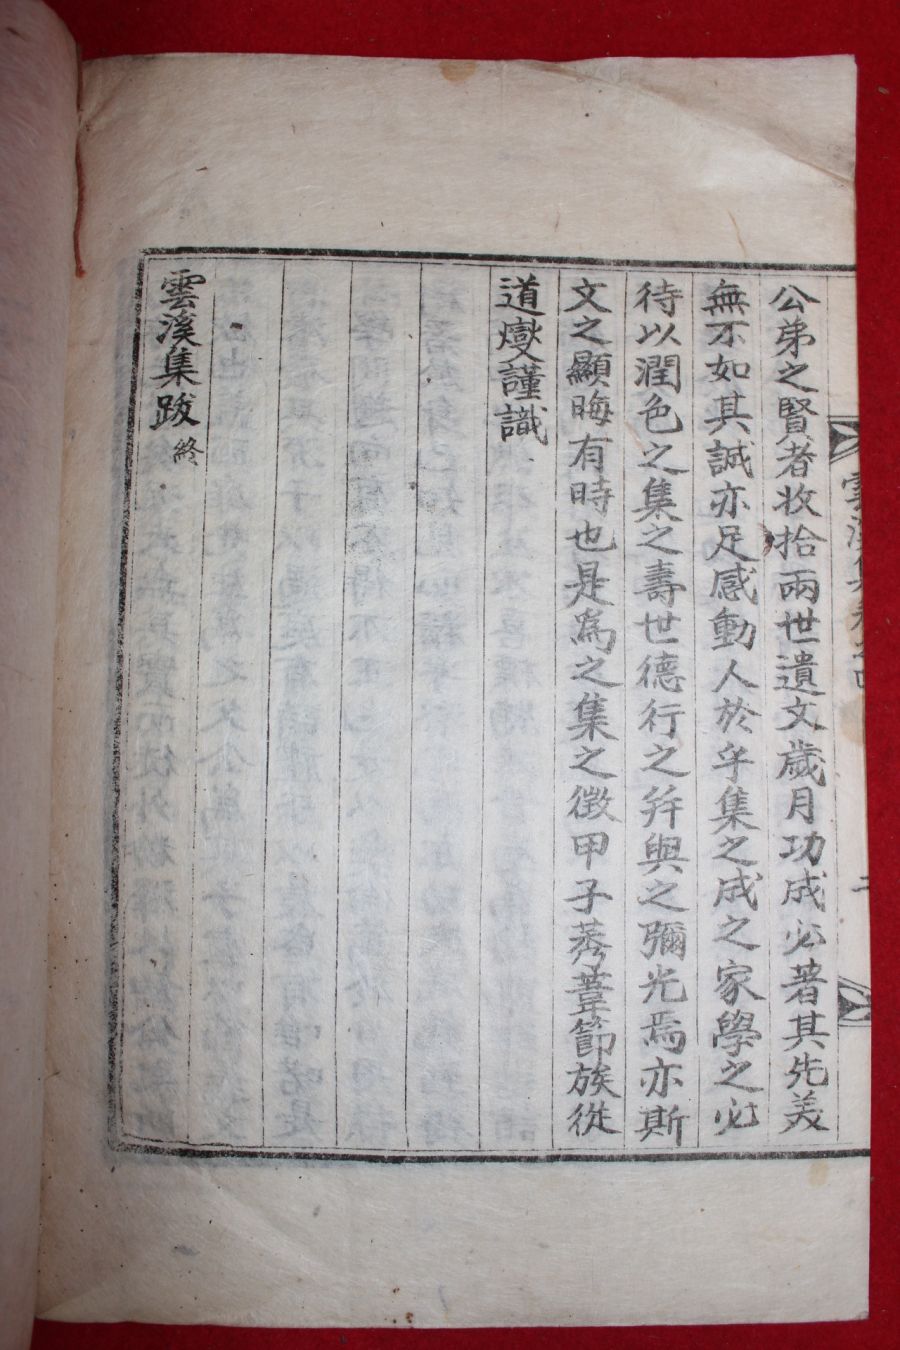 公弟之賢者收拾兩世遺文歲月功成必著其先美
無不如其誠亦足感動人於乎集之成之家學之必
待以潤色之集之壽世德行之幷與之彌光焉亦斯
文之顯晦有時也是爲之集之徵甲子莠葦節族從
道燮謹識
雲溪集跋 終